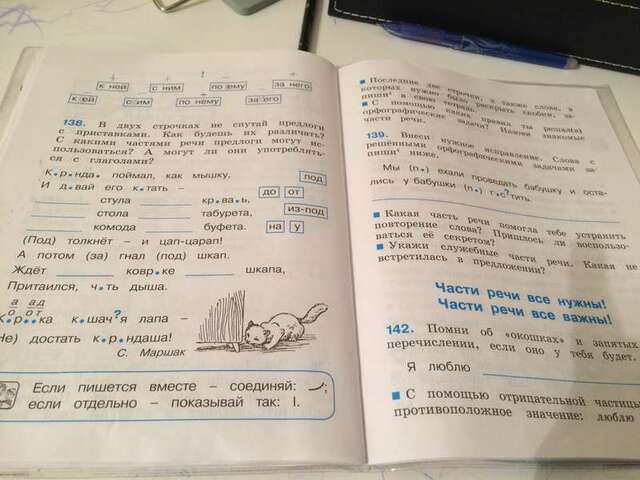 к ней с ним по ему за него
к ей с им по нему за его
138. В двух строчках не спутай предлоги
с приставками. Как будешь их различать?
С какими частями речи предлоги могут ис-
пользоваться? А могут ли они употреблять-
ся с глаголами?
К•р•нда• поймал, как мышку, под
И д•вай его к•тать –
стула кр•ва•ь, до от
стола табурета, из-под
комода буфета. на у
(Под) толкнёт – и цап-царап!
А потом (за) гнал (под) шкап.
Ждёт ковр•ке шкапа,
Притаился, ч•ть дыша.
а а д
о о т
К•р•••ка к•шач?я лапа –
Не) достать к•р•ндаша!
С. Маршак
Если пишется вместе – соединяй:
если отдельно – показывай так: I.
Последние две строчки, а также слова, в
которых нужно было раскрыть скобки, за-
пиши в свою тетрадь.
С помощью каких правил ты решал(а)
орфографические задачи? Назови знакомые
части речи.
139. Внеси нужное исправление. Слова с
решёнными орфографическими задачами за-
пиши ниже.
Мы (п•) ехали проведать бабушку и оста-
лись у бабушки (п•) г•с?тить.
Какая часть речи помогла тебе устранить
повторение слова? Пришлось ли воспользо-
ваться её секретом?
Укажи служебные части речи. Какая не
встретилась в предложении?
Части речи все нужны!
Части речи все важны!
142. Помни об «окошках» и запятых
перечислении, если оно у тебя будет.
Я люблю
С помощью отрицательной частицы
противоположное значение: люблю